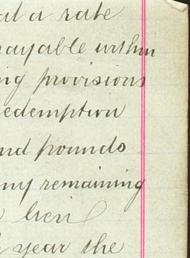 at a rate
payable within
ing provisions
redemption
and pounds
any remaining
year the